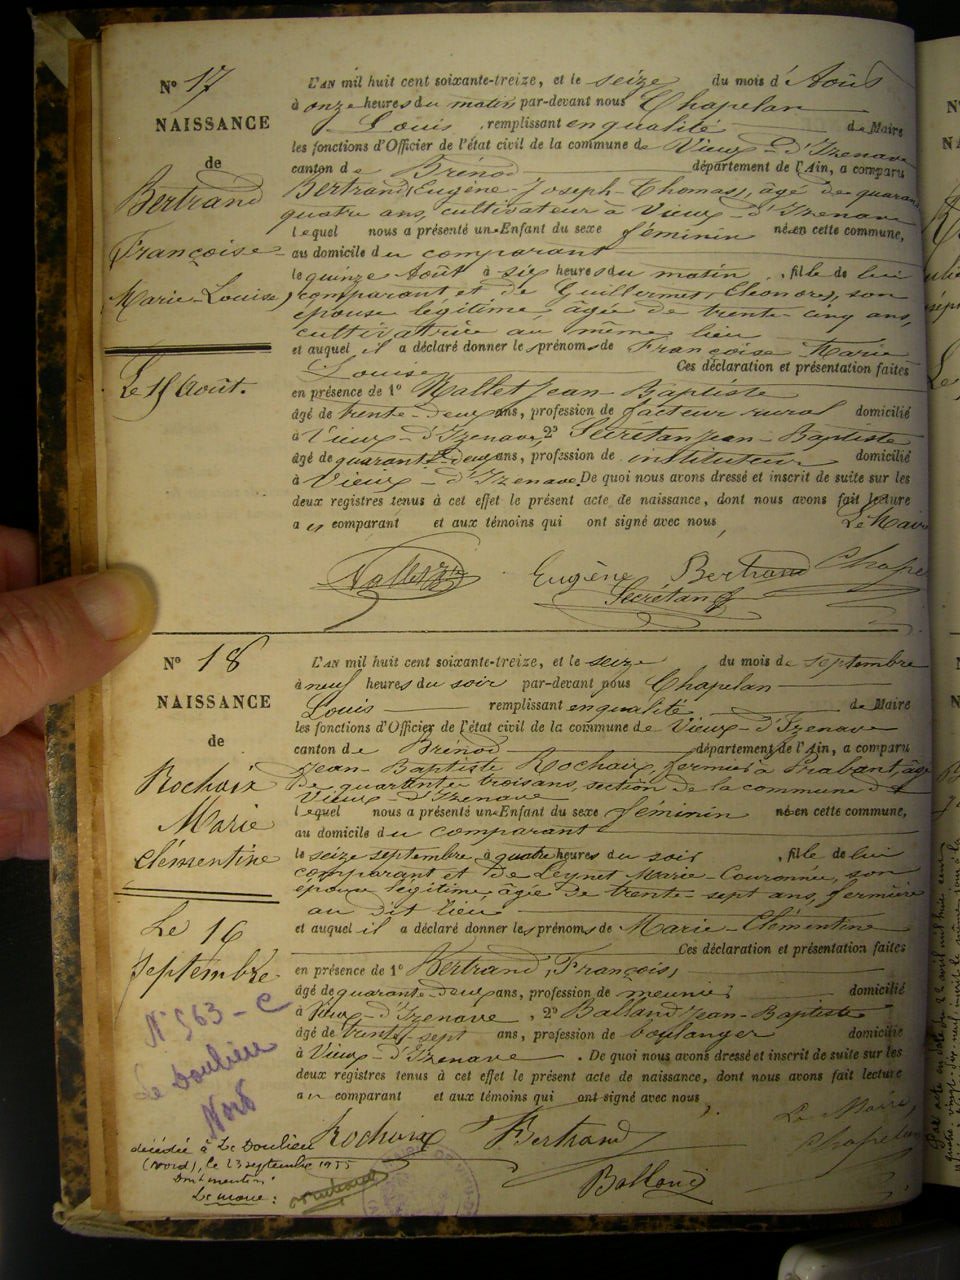 N° 17
NAISSANCE
de
Bertrand
Françoise
Marie-Louise
Le 15 Août.
L'AN mil huit cent soixante-treize, et le seize du mois d'Août
à onze heures du matin par-devant nous Chapelan
Louis, remplissant en qualité de Maire
les fonctions d'Officier de l'état civil de la commune de Vieux-d'Izenave
canton de Brénod département de l'Ain, a comparu
Bertrand (Eugène-Joseph-Thomas), âgé de quarante
quatre ans, cultivateur à Vieux-d'Izenave
lequel nous a présenté un Enfant du sexe féminin né en cette commune,
au domicile du comparant
le quinze Août à six heures du matin, fille de lui
comparant et de Guillermet (Eléonore), son
épouse légitime, âgée de trente-cinq ans,
cultivatrice au même lieu
et auquel il a déclaré donner les prénoms de Françoise Marie
Louise Ces déclaration et présentation faites
en présence de 1° Mallet Jean-Baptiste
âgé de trente-deux ans, profession de facteur rural domicilié
à Vieux-d'Izenave, 2° Secrétan Jean-Baptiste
âgé de quarante-deux ans, profession de instituteur domicilié
à Vieux-d'Izenave. De quoi nous avons dressé et inscrit de suite sur les
deux registres tenus à cet effet le présent acte de naissance, dont nous avons fait lecture
au comparant et aux témoins qui ont signé avec nous, Le Maire
Eugène Bertrand Chape
Secrétan
N° 18
NAISSANCE
de
Rochaix
Marie
Clémentine
Le 16
Septembre.
N° 563 - C
Le Doulieu
Nord
décédée à Le Doulieu
(Nord), le 23 septembre 1955
Dont mention
Le maire:
L'AN mil huit cent soixante-treize, et le seize du mois de septembre
à neuf heures du soir par-devant nous Chapelan
Louis remplissant en qualité de Maire
les fonctions d'Officier de l'état civil de la commune de Vieux-d'Izenave
canton de Brénod département de l'Ain, a comparu
Jean-Baptiste Rochaix, fermier à Prabant, âgé
de quarante trois ans, section de la commune de
Vieux-d'Izenave
lequel nous a présenté un Enfant du sexe féminin né en cette commune,
au domicile du comparant
le seize septembre, à quatre heures du soir, fille de lui
comparant et de Leynet Marie-Couronnée, son
épouse légitime âgée de trente-sept ans, fermière
au dit lieu
et auquel il a déclaré donner les prénoms de Marie-Clémentine
Ces déclaration et présentation faites
en présence de 1° Bertrand, François,
âgé de quarante-deux ans, profession de meunier domicilié
à Vieux-d'Izenave, 2° Balland Jean-Baptiste
âgé de trente-sept ans, profession de boulanger domicilié
à Vieux-d'Izenave. De quoi nous avons dressé et inscrit de suite sur les
deux registres tenus à cet effet le présent acte de naissance, dont nous avons fait lecture
au comparant et aux témoins qui ont signé avec nous,
Le Maire,
Rochaix Bertrand Chapelan
Balland